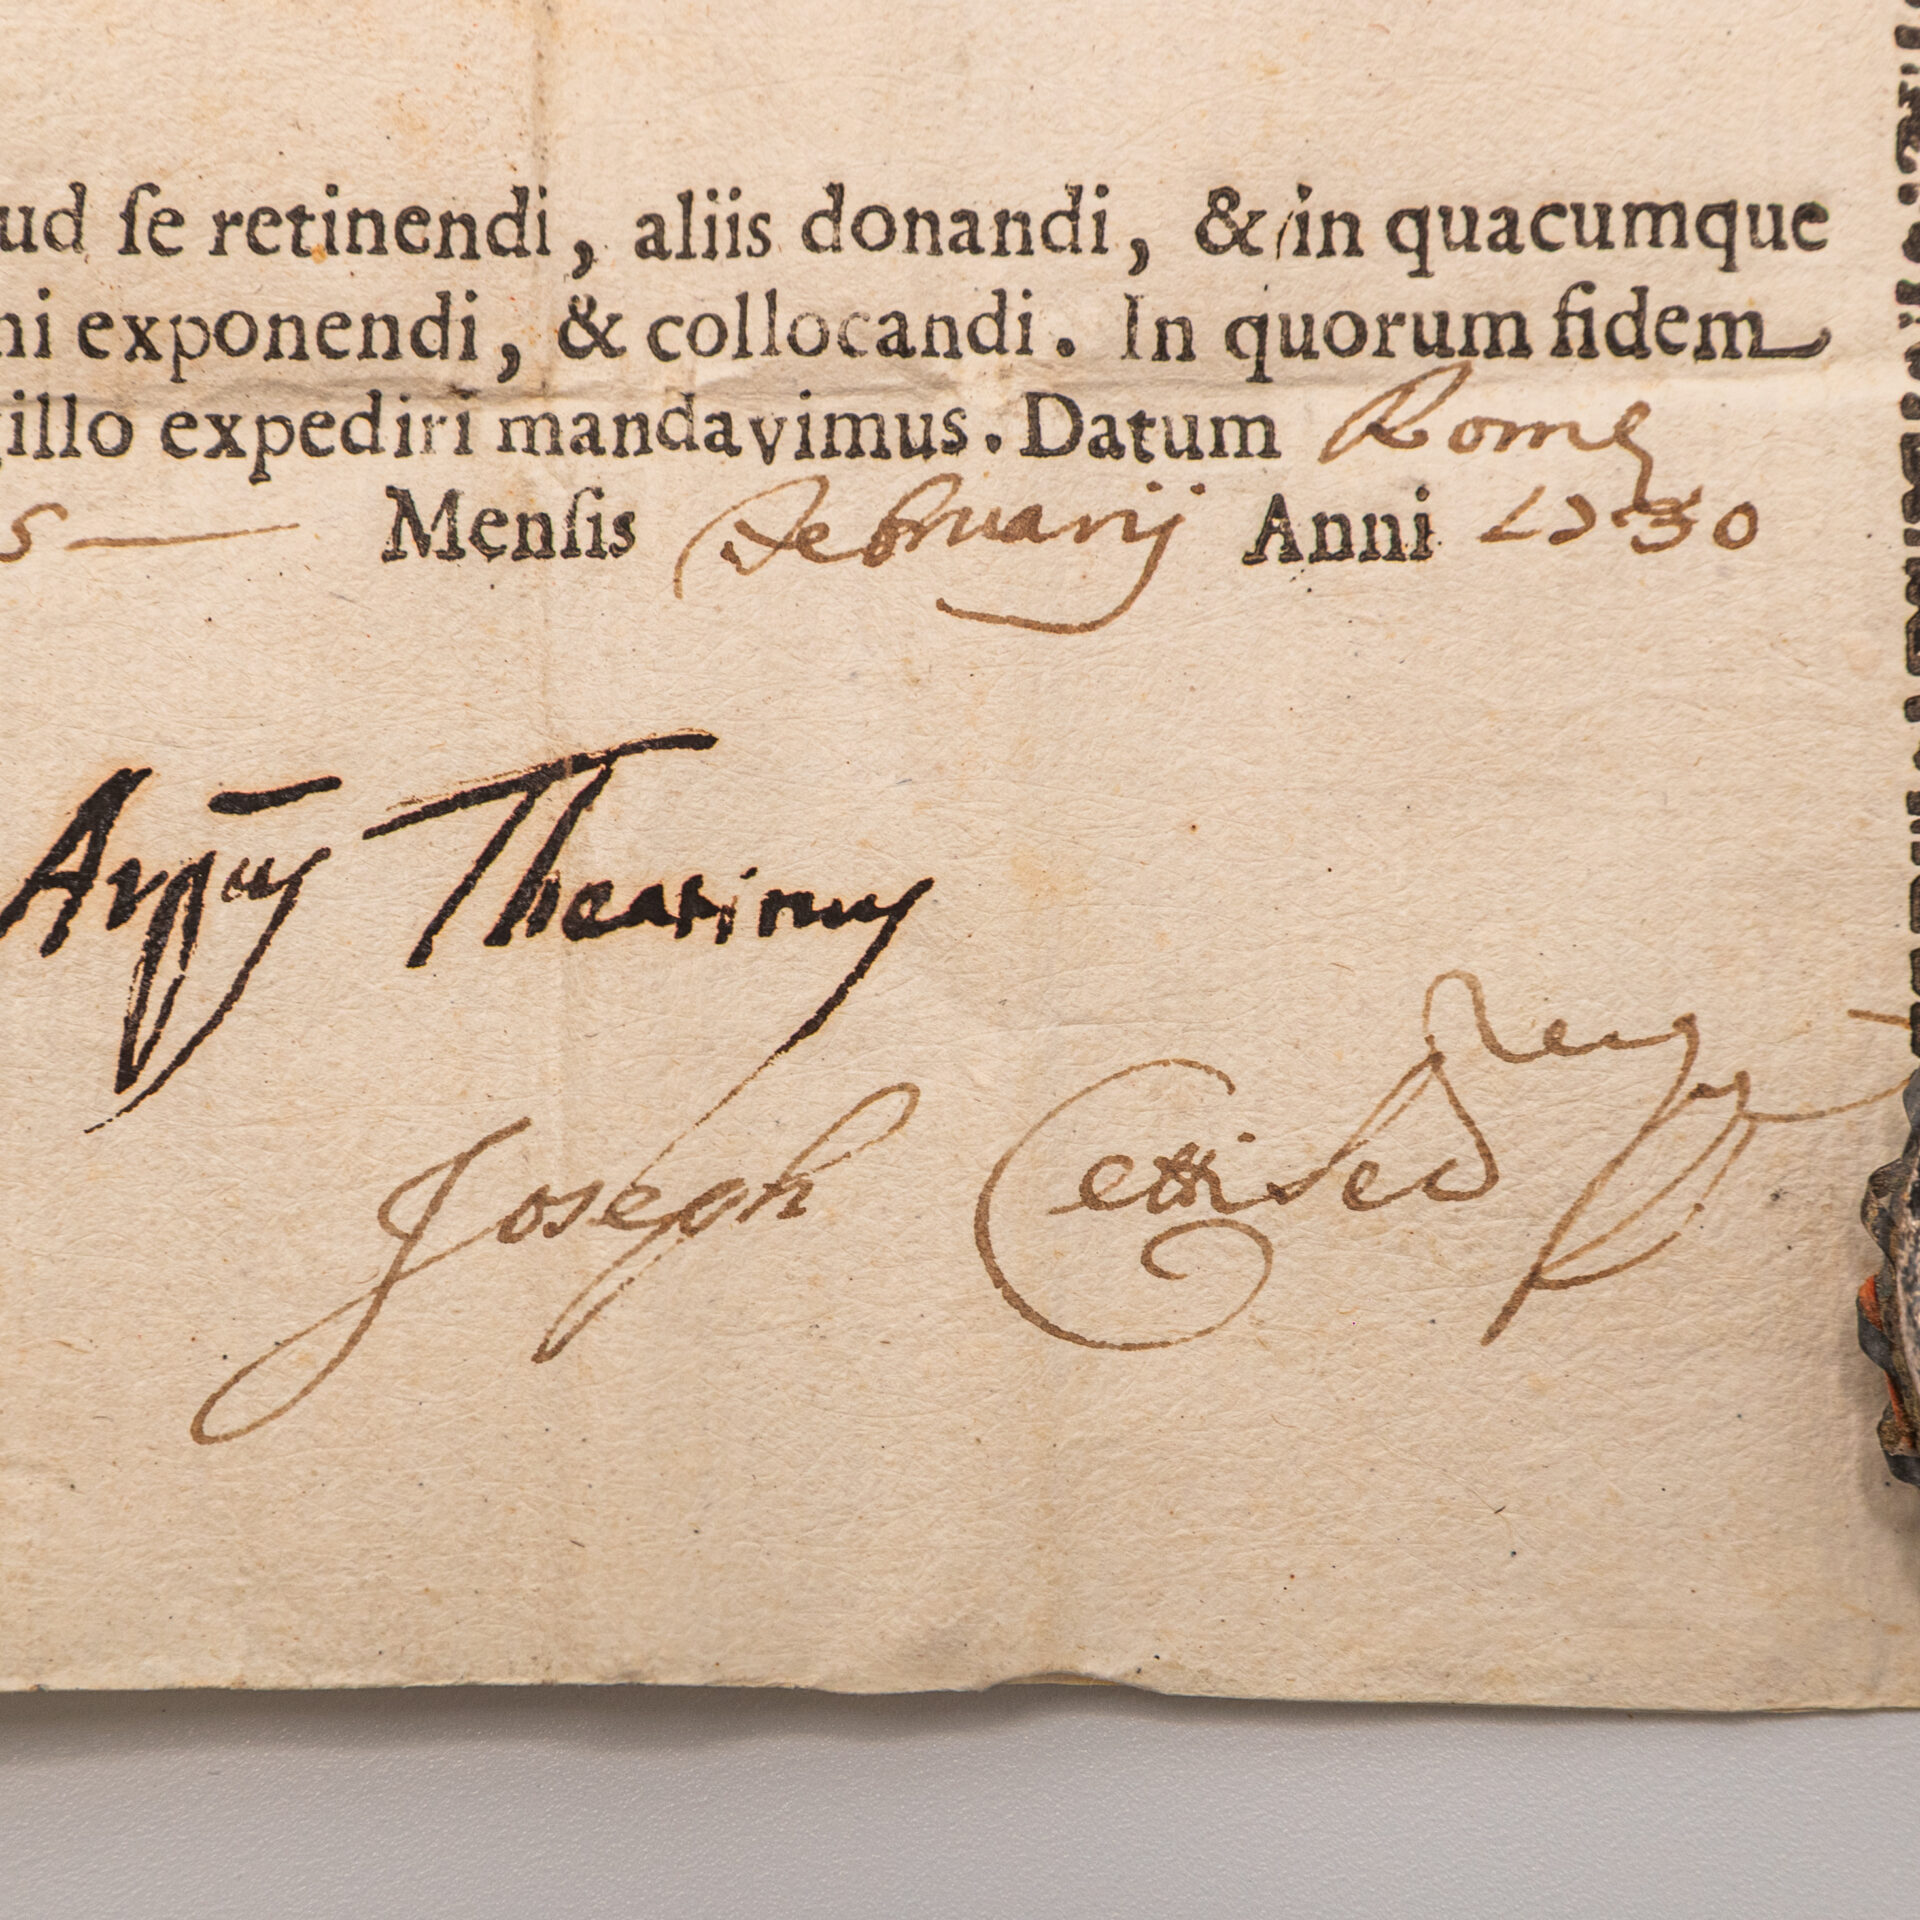 ud ſe retinendi, aliis donandi, & in quacumque
ni exponendi, & collocandi. In quorum fidem
illo expediri mandavimus. Datum Romę
s — Menſis Februarij Anni 1730
Joseph Cetti